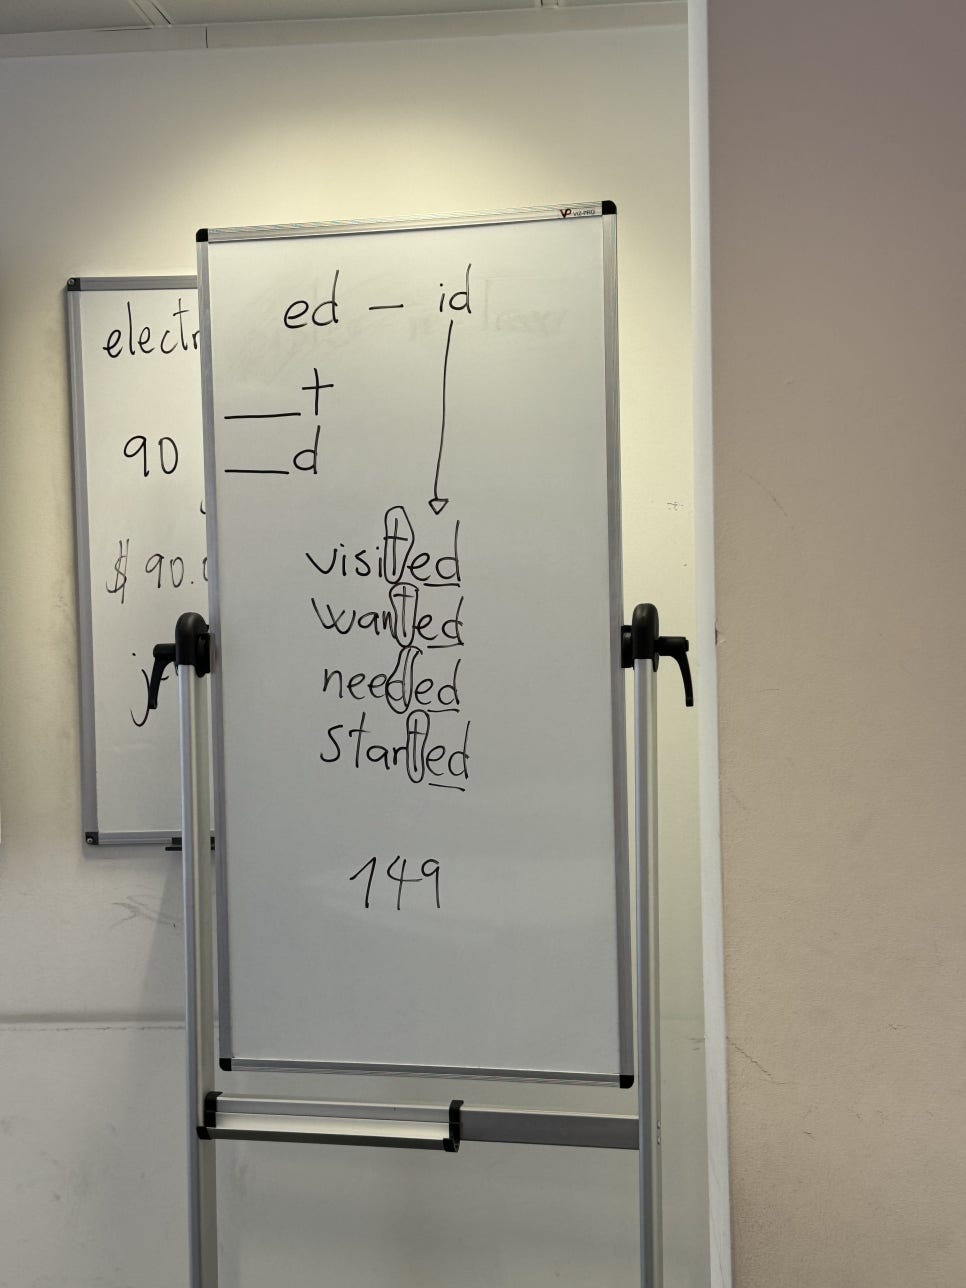 VP VIZ-PRO
ed – id
___t
___d
visited
wanted
needed
started
149
90
$ 90.